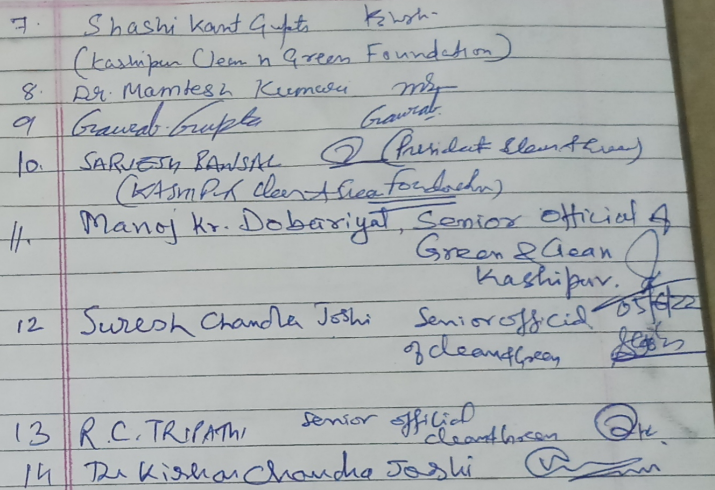 7. Shashi Kant Gupta
(Kashipur Clean n Green Foundation)
8. Dr. Mamtesh Kumari
9 Gaurab Gupta Gaurab
10. SARVESH BANSAL (President Clean & Green)
(KASHIPUR Clean & Green Foundation)
11. Manoj Kr. Dobariyal, Senior official of
Green & Clean
Kashipur.
05/6/22
12 Suresh Chandra Joshi Senior official
of clean & Green
13 R.C. TRIPATHI Senior official
clean & Green
14 Dr Kishor Chandra Joshi